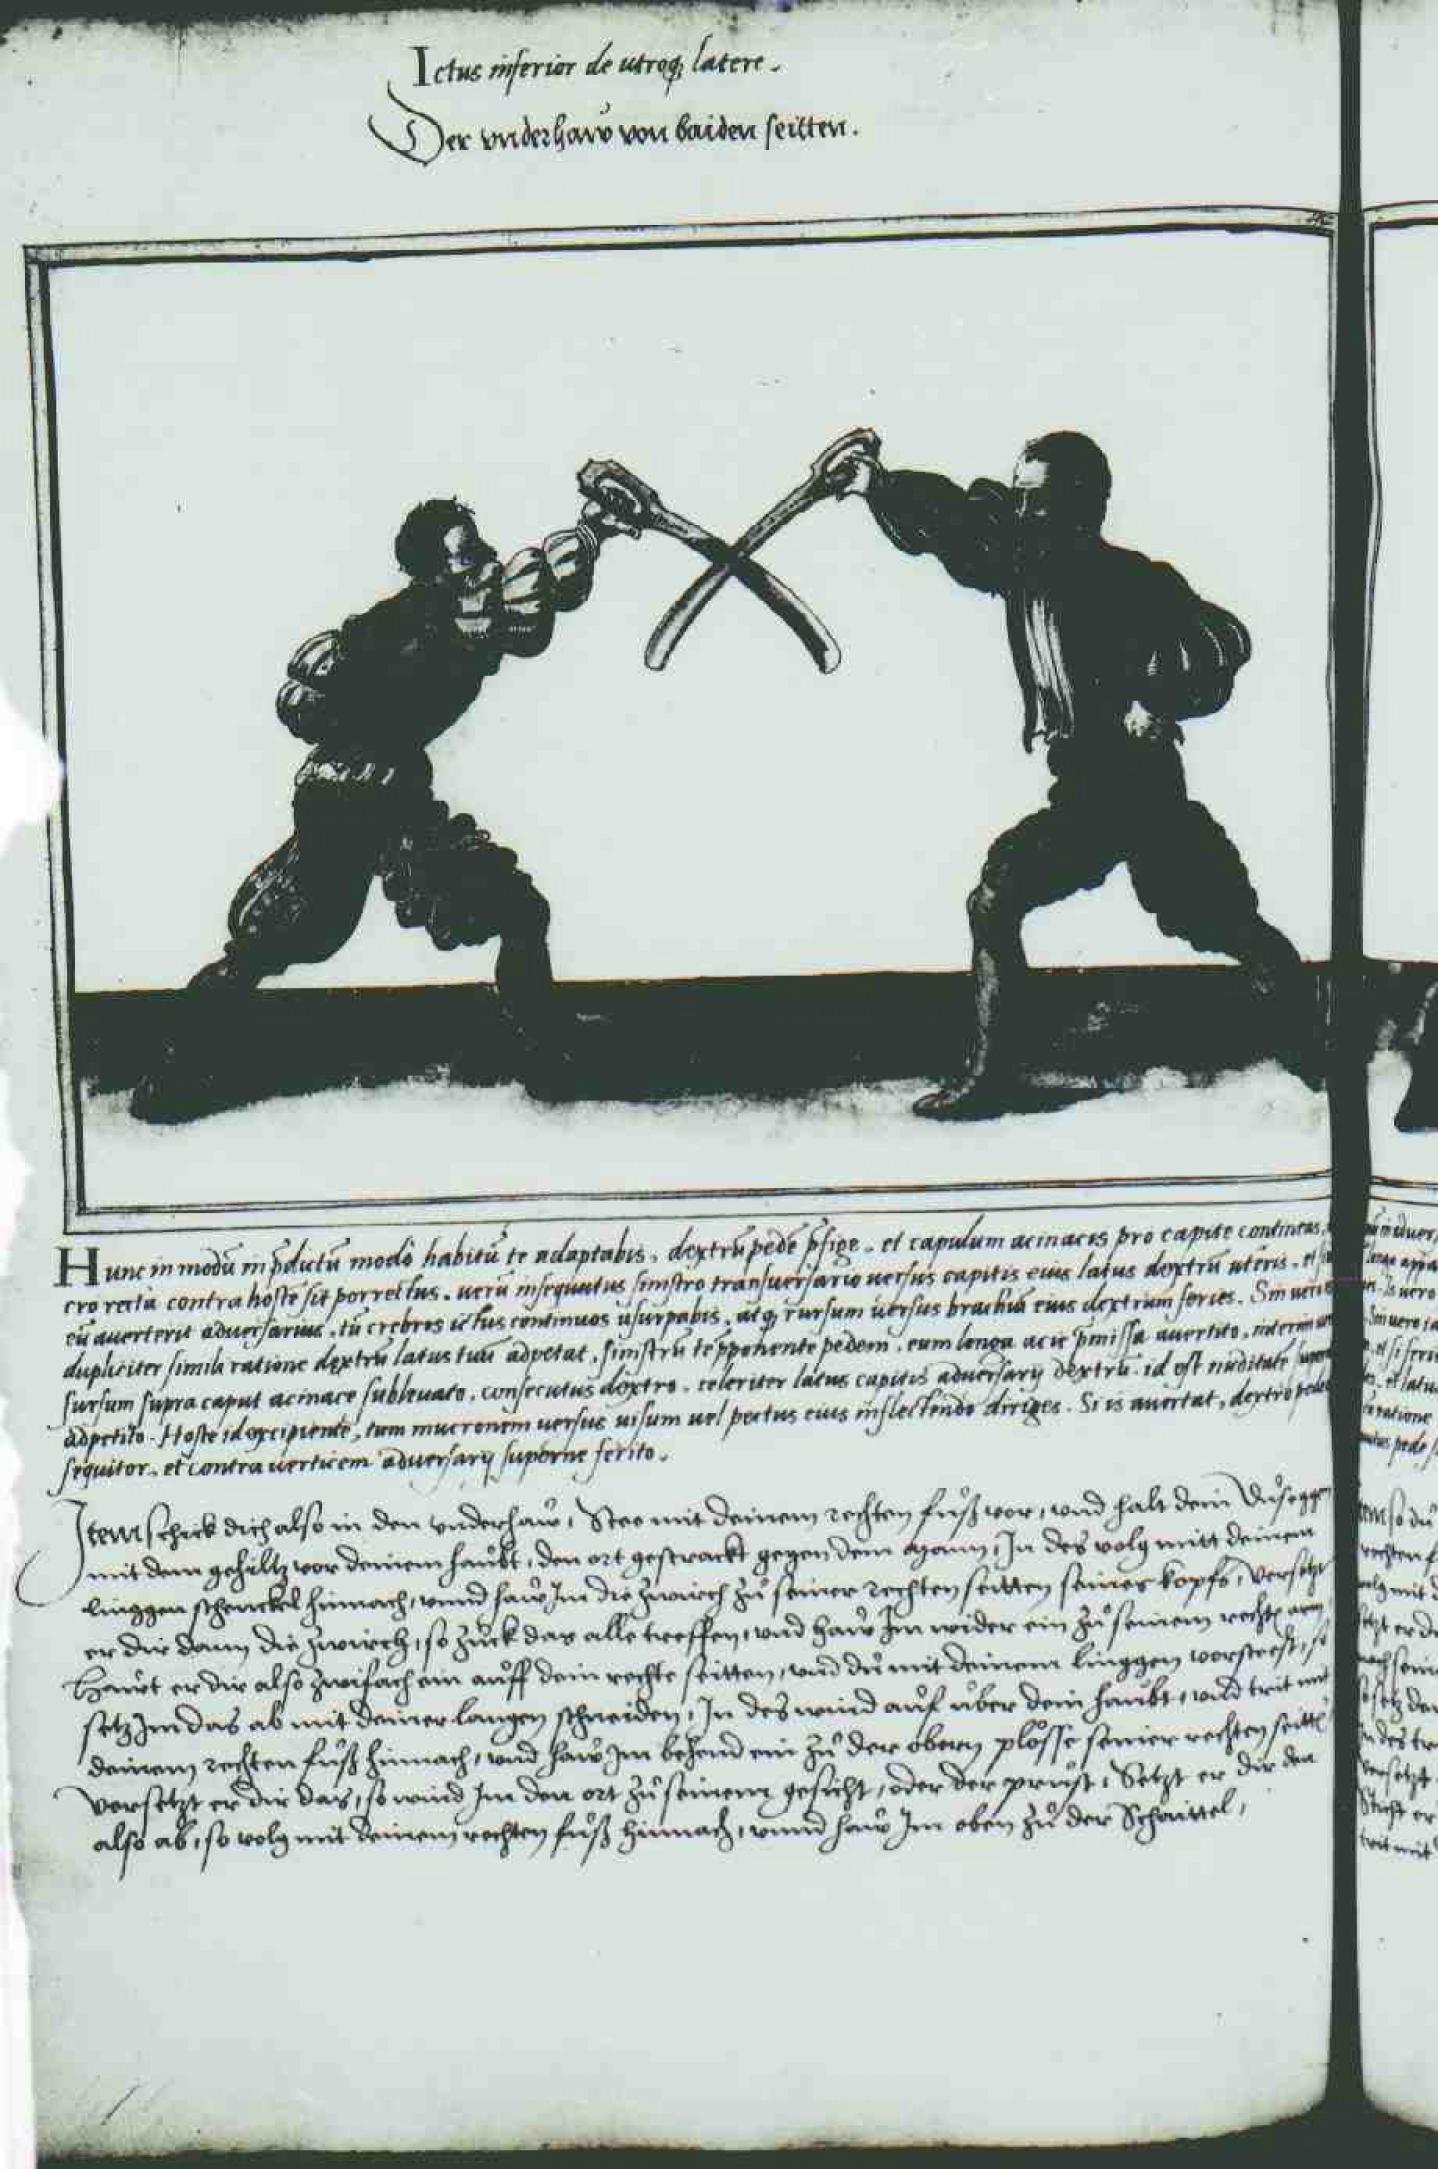 Ictus inferior de utroq; latere.
Der vnderhaw von baiden seitten.
Hunc in modū in p̄dictū modo habitū te adaptabis, dextrū pedē p̄fige, et capulum acinacis pro capite contineas,
cro recta contra hostē sit porrectus, verū insequutus sinistro transversario versus capitis eius latus dextrū uteris, et
eū averterit adversarius, tū crebros ictus continuos usurpabis, atq; rursum versus brachiū eius dextrum feries. Sin vero
dupliciter simili ratione dextrū latus tuū adpetat, sinistrū te p̄ponente pedem, eum longa acie p̄missa avertito, interim
sursum supra caput acinace sublevato, consecutus dextro, celeriter latus capitis adversarij dextrū, id est nuditatē
adpetito. Hoste id excipiente, tum mucronem versus visum vel pectus eius inflectendo diriges. Si is avertat, dextro pede
sequitor, et contra verticem adversarij superne ferito.
Item schick dich also in den vnderhaw, Stee mit deinem rechten fůß vor, vnd halt dein Dusegge
mit dem gehiltz vor deinem haubt, den ort gestrackt gegen dem Mann, In des volg mitt deinem
linggen schenckel hinnach, vnnd haw Im die zwirch zů seiner rechten seitten seines kopfs, Versetzt
er dir dann die zwirch, so zuck das alle treffen, vnd haw Im wider ein zů seinem recht arm
Hawt er dir also zwifach ein auff dein rechte seitten, vnd du mit deinem linggen vorsteest, so
setz Im das ab mit deiner langen schneiden, In des wind auf über dein haubt, vnd trit mit
deinem rechten fůß hinnach, vnd haw Im behend ein zů der obern plösse seiner rechten seitt
Versetzt er dir das, so wind Im den ort zů seinem gesicht, oder der prust, Setzt er dir den
also ab, so volg mit deinem rechten fůß hinnach, vnnd haw Im oben zů der Schaittel,